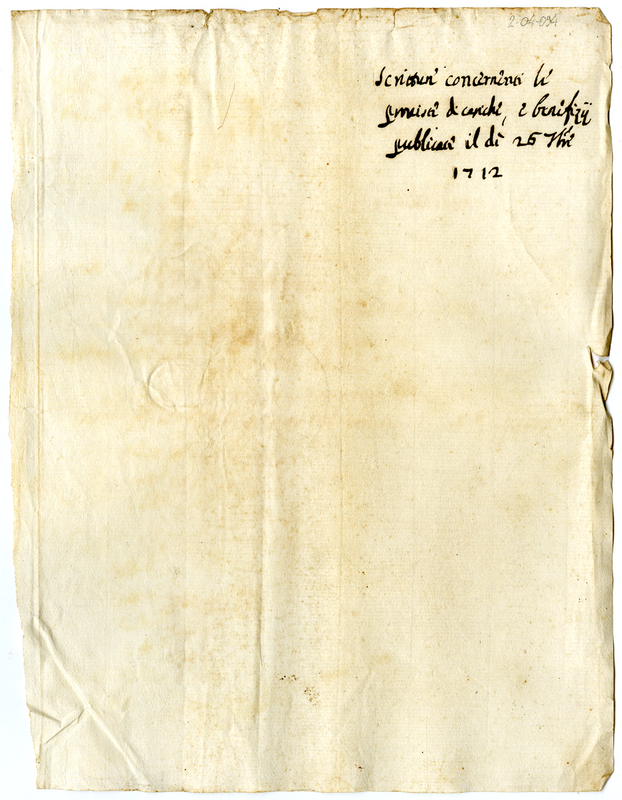 2-04-094
Scritture concernenti le
proviste di cariche, e benefizij
publicate il dì 26 9bre
1712